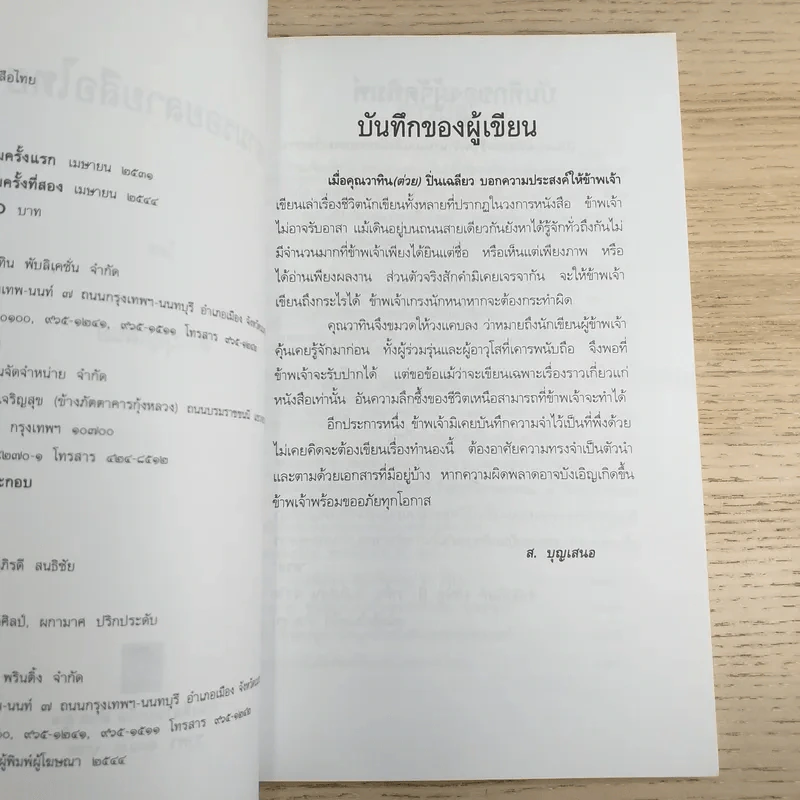 สือไทย
นครั้งแรก เมษายน ๒๕๓๑
มครั้งที่สอง เมษายน ๒๕๔๔
บาท
ทิน พับลิเคชั่น จำกัด
งเทพ-นนท์ ๗ ถนนกรุงเทพฯ-นนทบุรี อำเภอเมือง
๐๑๐๐, ๙๖๕-๑๒๔๑, ๙๖๕-๑๕๑๑ โทรสาร
นจัดจำหน่าย จำกัด
เจริญสุข (ข้างภัตตาคารกุ้งหลวง) ถนนบรมราชชนนี
กรุงเทพฯ ๑๐๗๐๐
๕๒๗๐-๑ โทรสาร ๔๒๔-๘๕๑๒
ะกอบ
ภิรดี สนธิชัย
ศิลป์, ผกามาศ ปริกประดับ
พรินติ้ง จำกัด
พ-นนท์ ๗ ถนนกรุงเทพฯ-นนทบุรี อำเภอเมือง
๐๐, ๙๖๕-๑๒๔๑, ๙๖๕-๑๕๑๑ โทรสาร
ผู้พิมพ์ผู้โฆษณา ๒๕๔๔
บันทึกของผู้เขียน
เมื่อคุณวาทิน(ต่วย) ปิ่นเฉลียว บอกความประสงค์ให้ข้าพเจ้า
เขียนเล่าเรื่องชีวิตนักเขียนทั้งหลายที่ปรากฏในวงการหนังสือ ข้าพเจ้า
ไม่อาจรับอาสา แม้เดินอยู่บนถนนสายเดียวกันยังหาได้รู้จักทั่วถึงกันไม่
มีจำนวนมากที่ข้าพเจ้าเพียงได้ยินแต่ชื่อ หรือเห็นแต่เพียงภาพ หรือ
ได้อ่านเพียงผลงาน ส่วนตัวจริงสักคำมิเคยเจรจากัน จะให้ข้าพเจ้า
เขียนถึงกระไรได้ ข้าพเจ้าเกรงนักหนาหากจะต้องกระทำผิด
คุณวาทินจึงขมวดให้วงแคบลง ว่าหมายถึงนักเขียนผู้ข้าพเจ้า
คุ้นเคยรู้จักมาก่อน ทั้งผู้ร่วมรุ่นและผู้อาวุโสที่เคารพนับถือ จึงพอที่
ข้าพเจ้าจะรับปากได้ แต่ขอข้อแม้ว่าจะเขียนเฉพาะเรื่องราวเกี่ยวแก่
หนังสือเท่านั้น อันความลึกซึ้งของชีวิตเหนือสามารถที่ข้าพเจ้าจะทำได้
อีกประการหนึ่ง ข้าพเจ้ามิเคยบันทึกความจำไว้เป็นที่พึ่งด้วย
ไม่เคยคิดจะต้องเขียนเรื่องทำนองนี้ ต้องอาศัยความทรงจำเป็นตัวนำ
และตามด้วยเอกสารที่มีอยู่บ้าง หากความผิดพลาดอาจบังเอิญเกิดขึ้น
ข้าพเจ้าพร้อมขออภัยทุกโอกาส
ส. บุญเสนอ